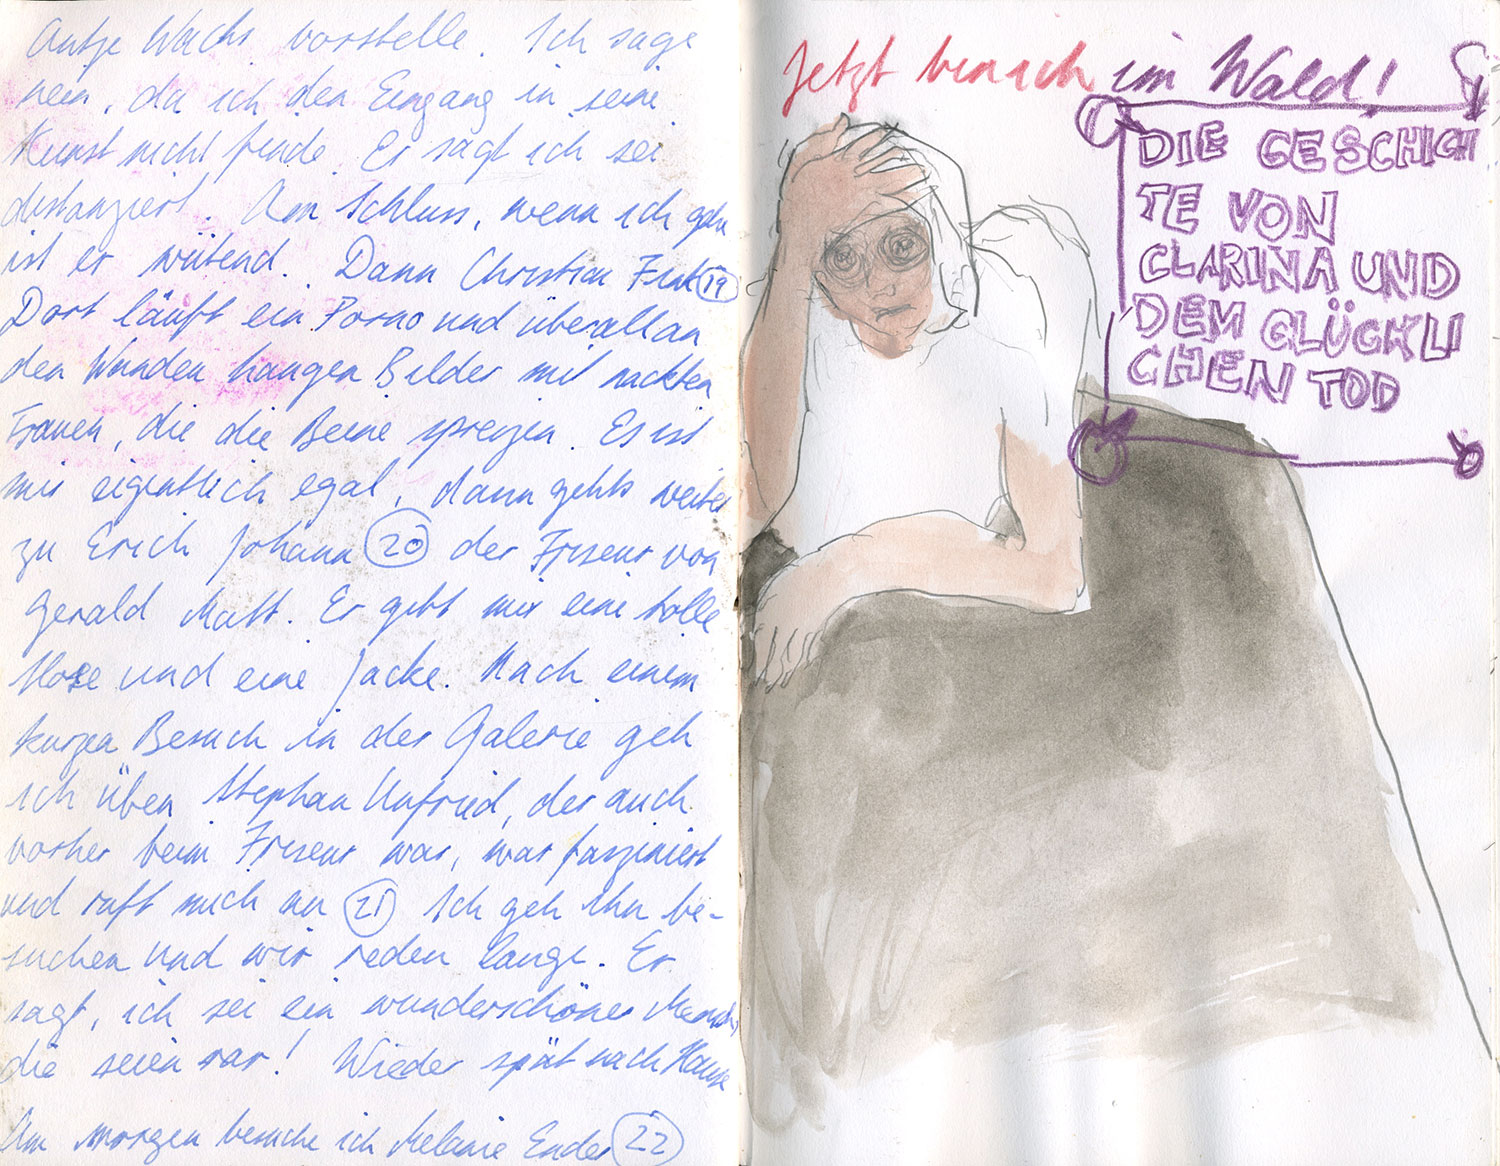 Antje Wachs vorstelle. Ich sage
nein, da ich den Eingang in seine
Kunst nicht finde. Er sagt ich sei
distanziert. Am Schluss, wenn ich geh
ist er wütend. Dann Christian 19
Dort läuft ein Porno und überall an
den Wänden hängen Bilder mit nackten
Frauen, die die Beine spreizen. Es ist
mir eigentlich egal, dann gehts weiter
zu Erich Johann 20 der Friseur von
Gerald Matt. Er gibt mir eine tolle
Hose und eine Jacke. Nach einem
kurzen Besuch in der Galerie geh
ich üben Stephan Unfried, der auch
vorher beim Friseur war, war fasziniert
und ruft mich an 21 Ich geh ihn be-
suchen und wir reden lange. Er
sagt, ich sei ein wunderschöner Mensch,
die seien rar! Wieder spät nach Hause
Am morgen besuche ich Melanie Ender 22
Jetzt bin ich im Wald!
DIE GESCHICH
TE VON
CLARINA UND
DEM GLÜCKLI
CHEN TOD